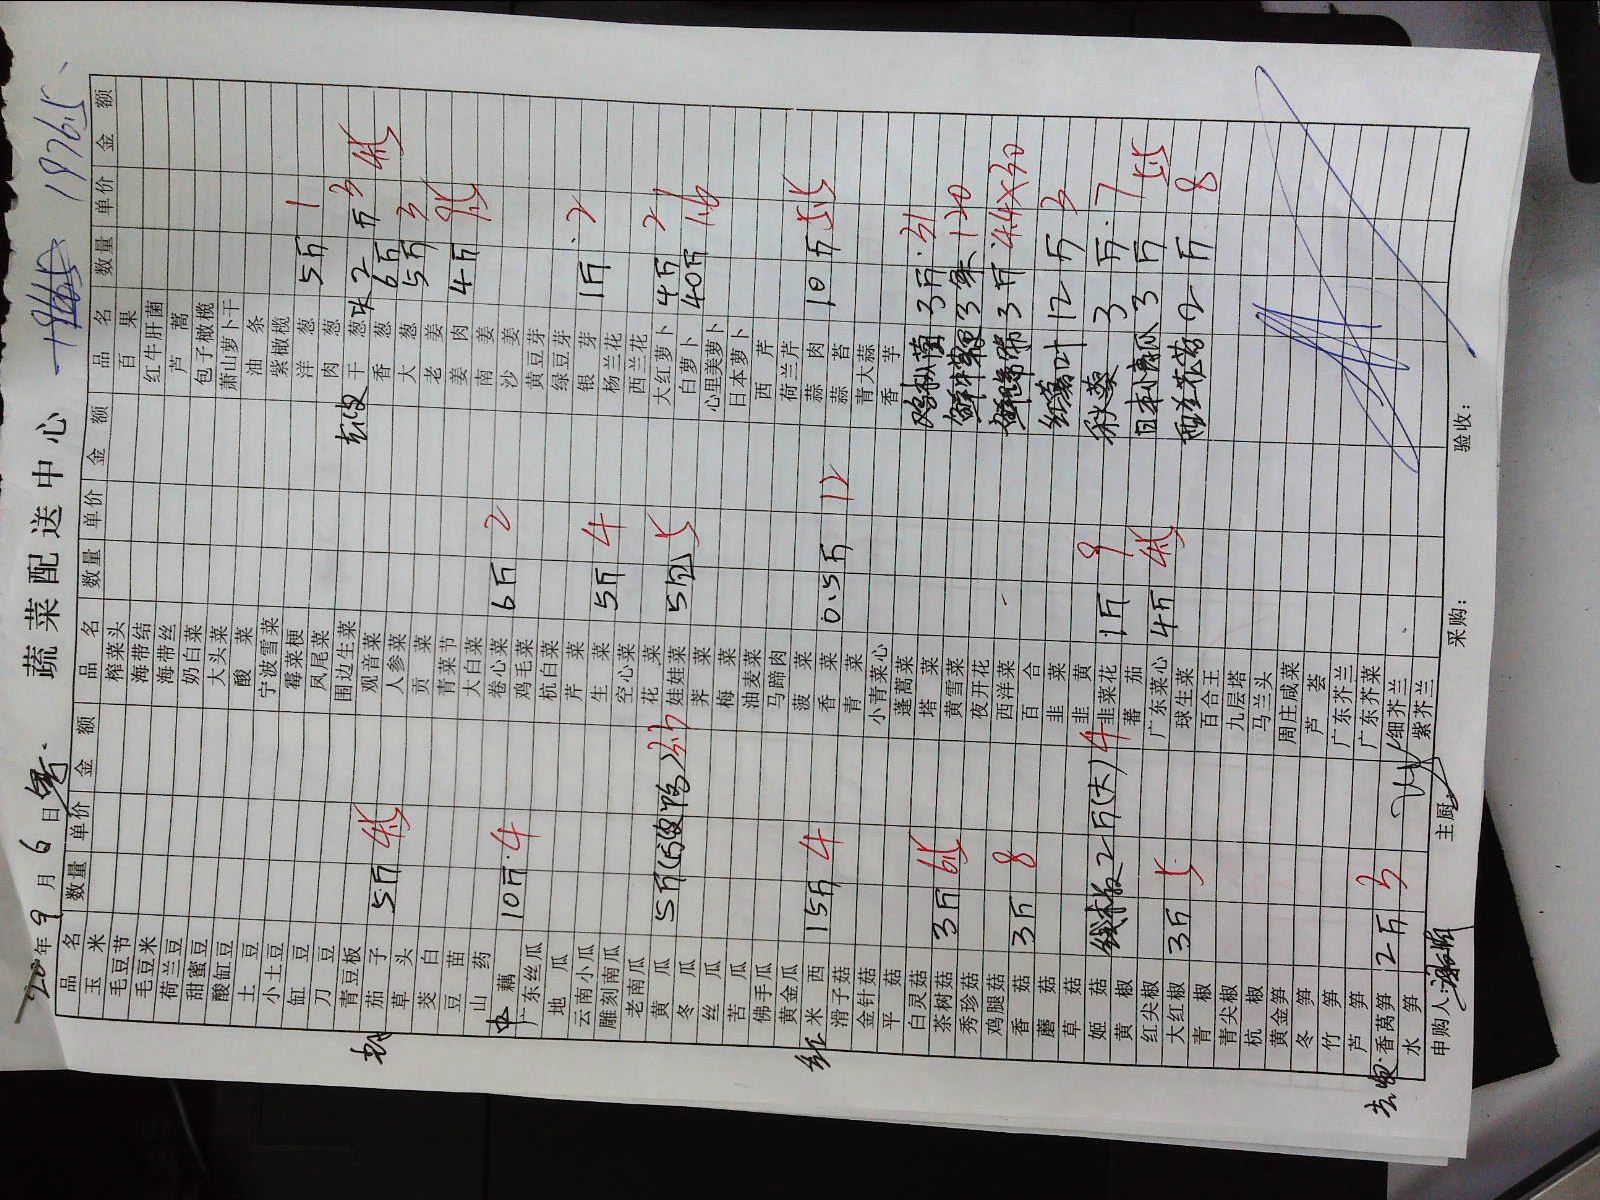 蔬菜配送中心 1976.5
年 9 月 6 日
品名 数量 单价 金额 品名 数量 单价 金额 品名 数量 单价 金额
玉米 榨菜头 百果
毛豆节 海带结 红牛肝菌
毛豆米 海带丝 芦蒿
荷兰豆 奶白菜 包子橄榄
甜蜜豆 大头菜 萧山萝卜干
酸缸豆 酸菜 油条
土豆 宁波雪菜 紫橄榄
小土豆 霉菜梗 洋葱 5斤 1
缸豆 凤尾菜 肉葱
刀豆 围边生菜 干葱 2斤 3
青豆板 观音菜 香葱 6斤 4.5
茄子 5斤 4.5 人参菜 大葱 5斤 3
草头 贡菜 老姜
茭白 青菜节 姜肉 4斤
豆苗 大白菜 南姜
山药 卷心菜 6斤 2 沙姜
中藕 10斤 4 鸡毛菜 黄豆芽
广东丝瓜 杭白菜 绿豆芽
地瓜 芹菜 银芽 1斤 2
云南小瓜 生菜 5斤 4 杨兰花
雕刻南瓜 空心菜 西兰花
老南瓜 花菜 大红萝卜 4斤 2
黄瓜 5斤 娃娃菜 5包 5 白萝卜 40斤 1.6
冬瓜 荠菜 心里美萝卜
丝瓜 梅菜 日本萝卜
苦瓜 油麦菜 西芹
佛手瓜 马蹄肉 荷兰芹
黄金瓜 菠菜 蒜肉 10斤 5.5
红米西 15斤 4 香菜 0.5斤 12 蒜苔
滑子菇 青菜 青大蒜
金针菇 小青菜心 香芋
平菇 蓬蒿菜
白灵菇 塔菜 3斤 31
茶树菇 3斤 6.5 黄雪菜 3 120
秀珍菇 夜开花
鸡腿菇 西洋菜 3斤 44×30
香菇 3斤 8 百合
蘑菇 韭菜 12斤 3
草菇 韭黄 1斤 9
姬菇 线椒 2斤(大) 4 韭菜花 秋葵 3斤 7
黄椒 蕃茄 4斤 4.5 日本小南瓜 3斤 5.5
红尖椒 广东菜心
大红椒 3斤 5 球生菜 2斤 8
青椒 百合王
青尖椒 九层塔
杭椒 马兰头
黄金笋 周庄咸菜
冬笋 芦荟
竹笋 广东芥兰
芦笋 广东芥菜
去皮 香莴笋 2斤 3 细芥兰
水笋 紫芥兰
申购人: 主厨: 采购: 验收: